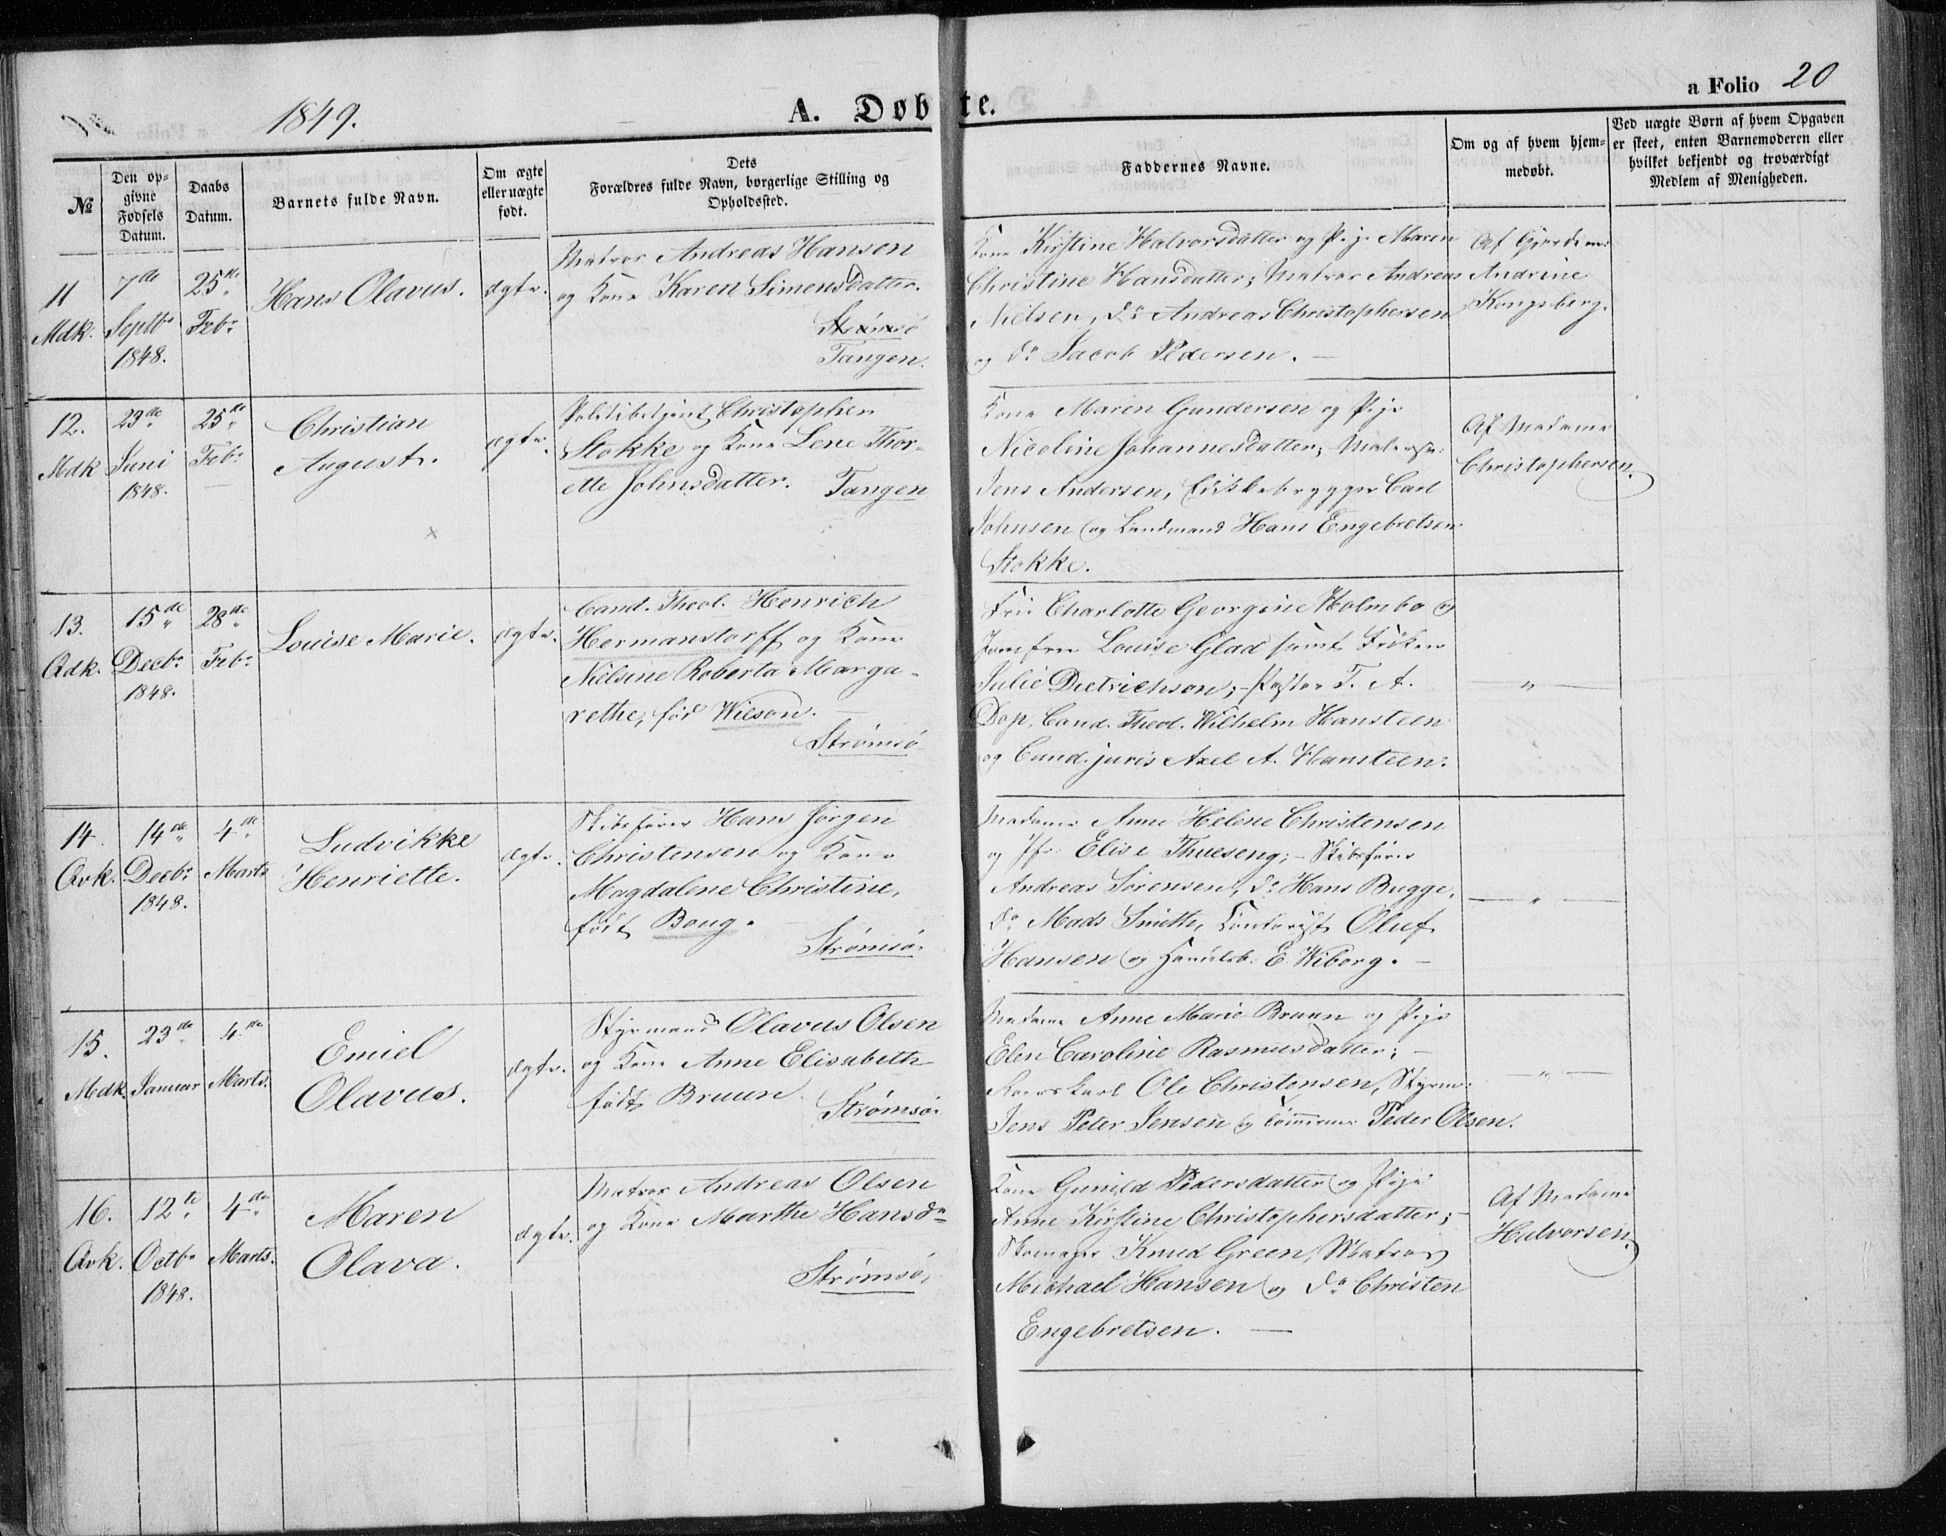 1849.
A. Døbte.
a Folio 20
№
Den op-
givne
Fødsels
Datum.
Daabs
Datum.
Barnets fulde Navn.
Om ægte
eller uægte
født.
Dets
Forældres fulde Navn, borgerlige Stilling og
Opholdssted.
Faddernes Navne.
Om og af hvem hjem-
medøbt.
Ved uægte Børn af hvem Opgaven
er skeet, enten Barnemoderen eller
hvilket bekjendt og troværdigt
Medlem af Menigheden.
11
Mdk.
7de
Septbr
1848.
25de
Febr
Hans Olavus.
ægte.
Matros Andreas Hansen
og Kone Karen Simensdatter.
Strømsø
Tangen.
Kone Kirstine Halvorsdatter og Pige Maren
Christine Hansdatter; Matros Andreas
Nielsen, do Andreas Christophersen
og do Jacob Pedersen. —
Af Gjordem:
Andrine
Kongsberg.
12.
Mdk
23de
Juni
1848.
25de
Febr
Christian
August.
ægte.
Politibetjent Christopher
Stokke og Kone Lene Thor-
ette Johnsdatter. Tangen
Kone Maren Gundersen og Pige
Nicoline Johannesdatter; Malersv:
Jens Andersen, Blikkebrygger Carl
Johnsen og Landmand Hans Engebretsen
Stokke.
Af Madame
Christophersen.
13.
Qdk.
15de
Decbr
1848.
28de
Febr
Louise Marie.
ægte.
Cand. Theol. Henrich
Hermanstorff og Kone
Nielsine Roberta Marga-
rethe, fød Wilson. —
Strømsø
Fru Charlotte Georgine Holmbo og
Jomfru Louise Glad samt Frøken
Julie Dietrichson; Pastor F. A.
Dop, Cand. Theol. Wilhelm Hansteen
og Cand. juris Axel A. Hansteen.
— " —
14.
Qvk.
14de
Decbr
1848.
4de
Marts
Ludvikke
Henriette.
ægte.
Skibsfører Hans Jørgen
Christensen og Kone
Magdalene Christine,
født Boug. —
Strømsø.
Madame Anne Helene Christensen
og Jfr. Elise Thueseng; — Skibsfører
Andreas Sørensen, do Hans Bugge,
do Mads Smith, Contorist Oluf
Hansen og Handelsb. E. Wiborg. —
— " —
15.
Mdk
23de
Januar
4de
Marts.
Emiel
Olavus.
ægte.
Styrmand Olavus Olsen
og Kone Anne Elisabeth
født Bruun.
Strømsø.
Madame Anne Marie Bruun og Pige
Elen Caroline Rasmusdatter; —
Roerskarl Ole Christensen, Styrm:
Jens Peter Jensen og Tømmerm: Peder Olsen.
— " —
16.
Qvk.
12te
Octbr
1848.
4de
Marts.
Maren
Olava.
ægte.
Matros Andreas Olsen
og Kone Marthe Hansdr
Strømsø,
Kone Gunild Pedersdatter og Pige
Anne Kirstine Christophersdatter; —
Skomager Knud Green, Matros
Michael Hansen og do Christen
Engebretsen. —
Af Madame
Halvorsen.